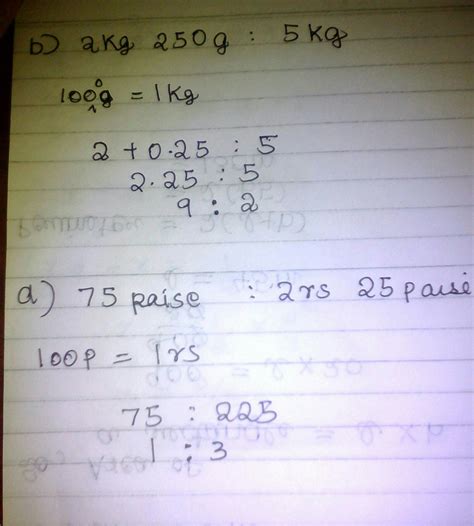 b) 2kg 250g : 5kg
1000g = 1kg
2 + 0.25 : 5
2.25 : 5
9 : 2
a) 75 paise : 2rs 25 paise
100p = 1rs
75 : 225
1 : 3